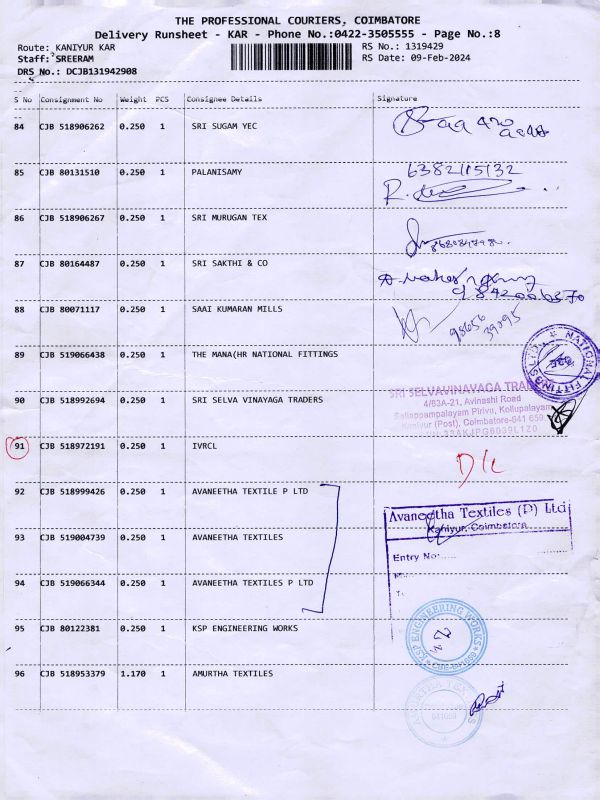 THE PROFESSIONAL COURIERS, COIMBATORE
Delivery Runsheet - KAR - Phone No.:0422-3505555 - Page No.:8
Route: KANIYUR KAR
RS No.: 1319429
Staff: SREERAM
RS Date: 09-Feb-2024
DRS No.: DCJB131942908
S No Consignment No Weight PCS Consignee Details Signature
84 CJB 518906262 0.250 1 SRI SUGAM YEC
85 CJB 80131510 0.250 1 PALANISAMY
86 CJB 518906267 0.250 1 SRI MURUGAN TEX
87 CJB 80164487 0.250 1 SRI SAKTHI & CO
88 CJB 80071117 0.250 1 SAAI KUMARAN MILLS
98656
39895
89 CJB 519066438 0.250 1 THE MANA(HR NATIONAL FITTINGS
NATIONAL FITTINGS LTD
90 CJB 518992694 0.250 1 SRI SELVA VINAYAGA TRADERS
SRI SELVAVINAYAGA TRAD
4/83A-21, Avinashi Road
Sellappampalayam Pirivu, Kollupalayam
Kaniyur (Post), Coimbatore-641 659.
33AKJPG6039L1Z0
91 CJB 518972191 0.250 1 IVRCL
D/L
92 CJB 518999426 0.250 1 AVANEETHA TEXTILE P LTD
Avaneetha Textiles (P) Ltd
Kaniyur, Coimbatore
93 CJB 519004739 0.250 1 AVANEETHA TEXTILES
Entry No:
94 CJB 519066344 0.250 1 AVANEETHA TEXTILES P LTD
95 CJB 80122381 0.250 1 KSP ENGINEERING WORKS
KSP ENGINEERING WORKS
96 CJB 518953379 1.170 1 AMURTHA TEXTILES